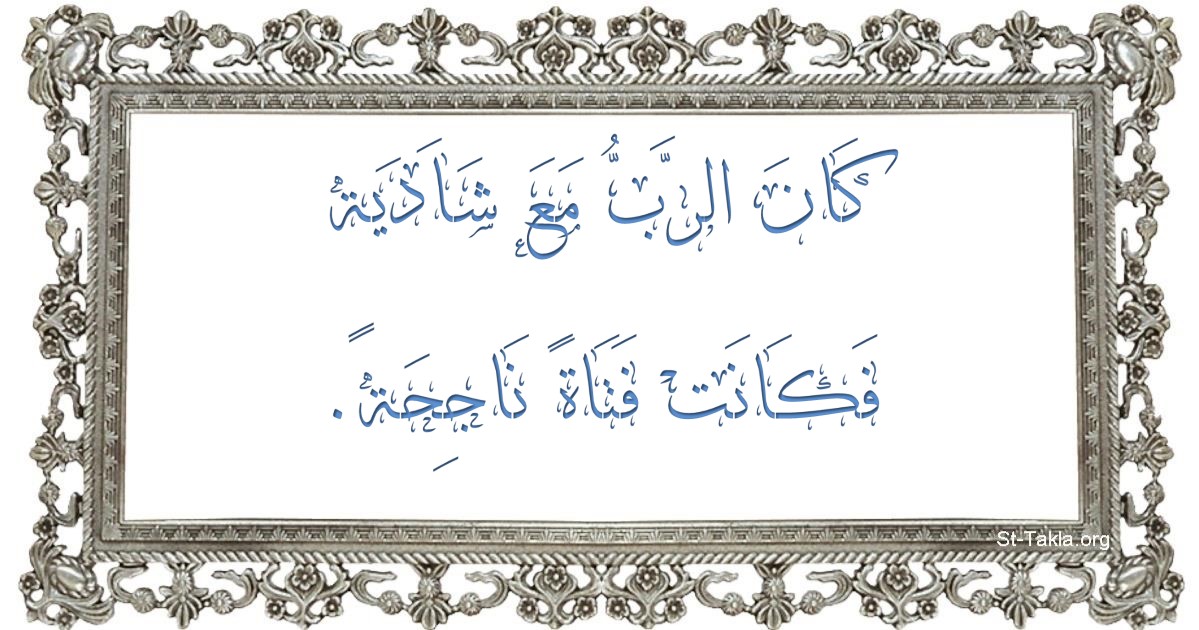 كَانَ الرَّبُّ مَعَ شَادَيَة
فَكَانَت فَتَاةً نَاجِحَةً.
St-Takla.org